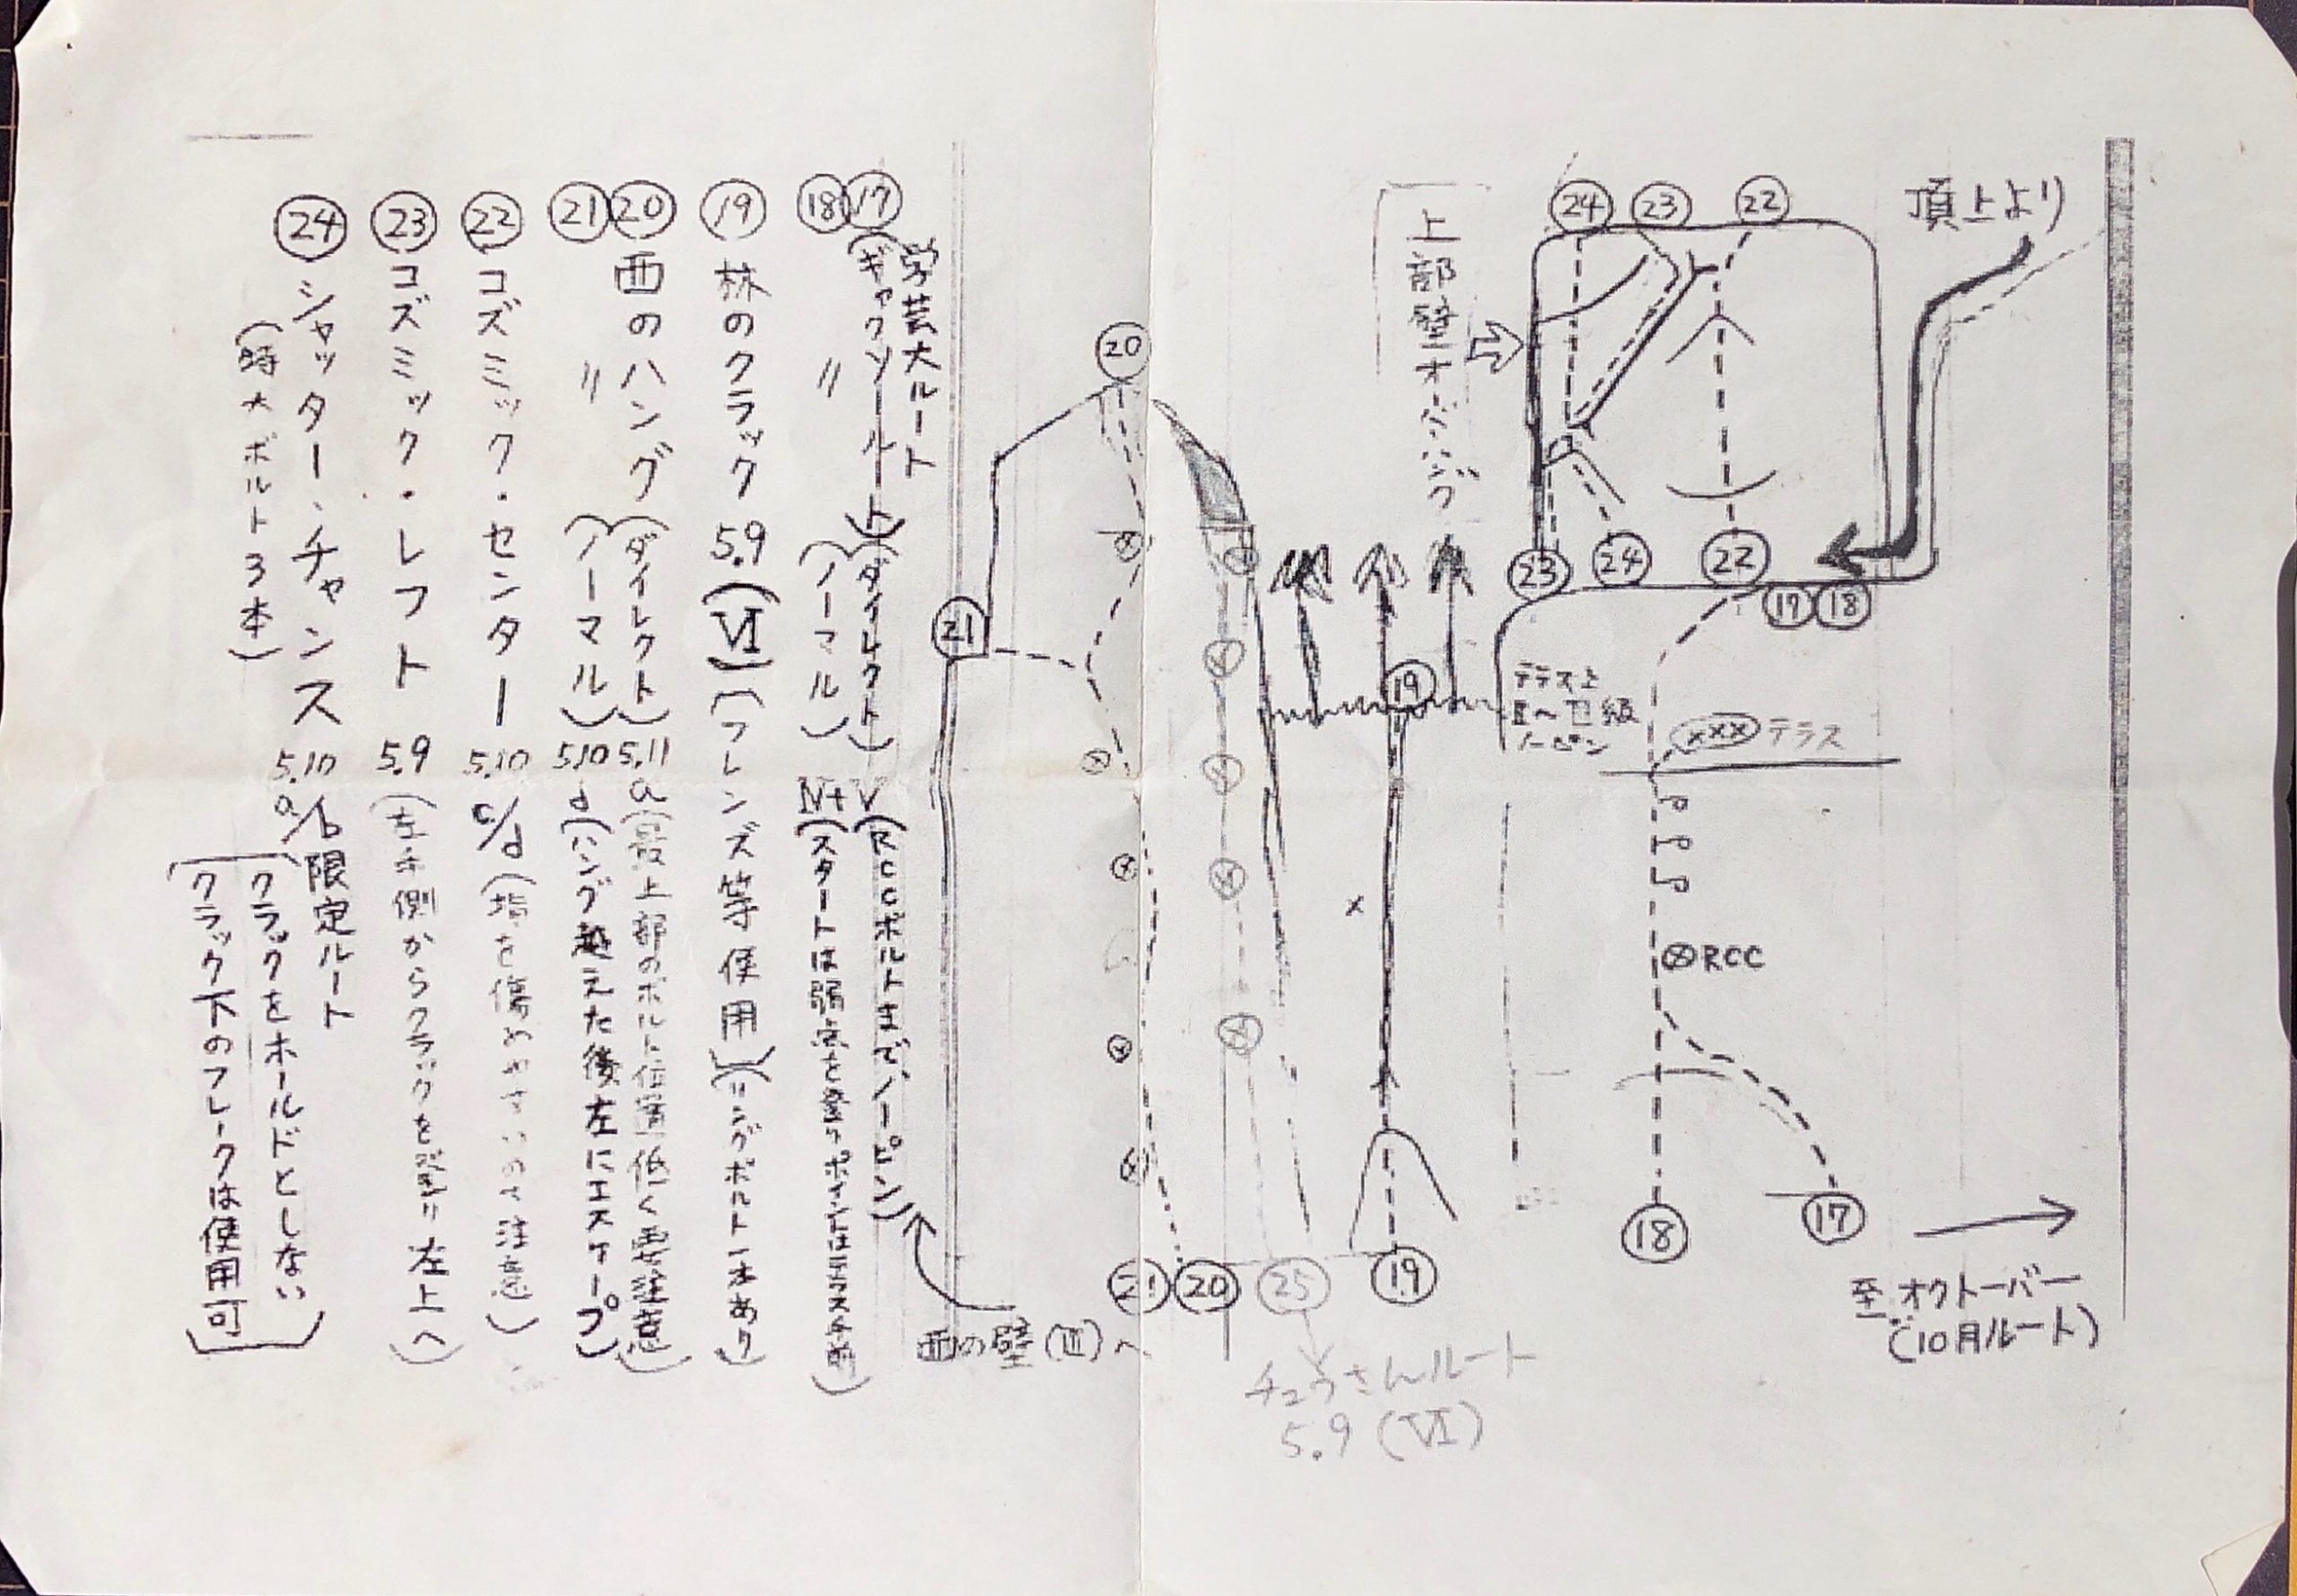 頂上より
上部壁オーバーハング
24
23
22
23
24
22
17
18
テラス
19
20
21
RCC
18
17
21
20
25
19
至.オクトーバー
(10月ルート)
チュウさんルート
5.9 (VI)
西の壁(III)へ
学芸大ルート
17 (ギャクソールート)(ダイレクト) V (RCCボルトまでノーピン)
18 〃 (ノーマル) IV+
19 林のクラック 5.9 (VI) (フレンズ等使用)(リングボルト一本あり)
20 西のハング (ダイレクト) 5.11a (最上部のボルト位置低く要注意)
21 〃 (ノーマル) 5.10d (ハング越えた後左にエスケープ)
22 コズミック・センター 5.10c/d
23 コズミック・レフト 5.9 (左手側からクラックを登り左上へ)
24 シャッター、チャンス 5.10a/b 限定ルート
クラックをホールドとしない
クラック下のフレークは使用可
ボルト3本)